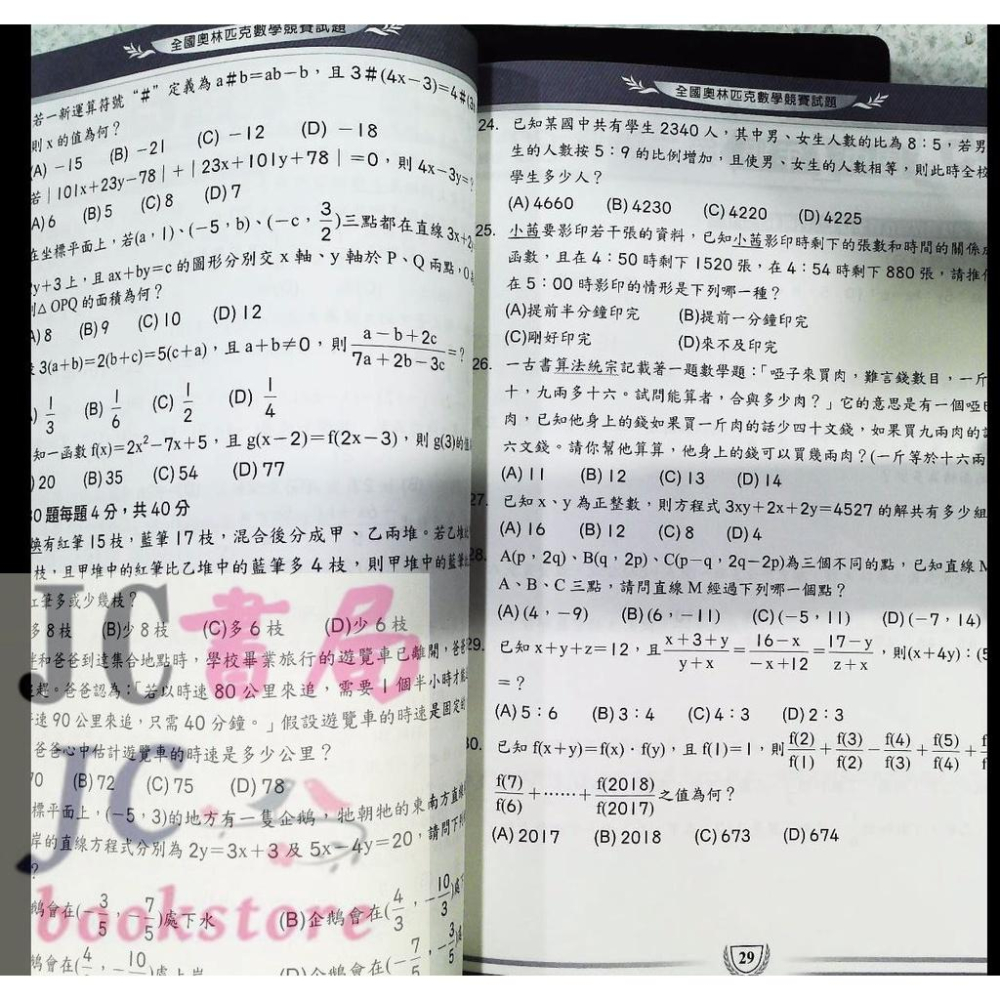 全國奧林匹克數學競賽試題
若一新運算符號“#”定義為a#b=ab−b,且3#(4x−3)=4#
則x的值為何?
(A) −15 (B) −21 (C) −12 (D) −18
若|101x+23y−78|+|23x+101y+78|=0,則4x−3y=?
(A) 6 (B) 5 (C) 8 (D) 7
在坐標平面上,若(a,1)、(−5,b)、(−c,3/2)三點都在直線3x+2
y+3上,且ax+by=c的圖形分別交x軸、y軸於P、Q兩點,O
△OPQ的面積為何?
(A) 8 (B) 9 (C) 10 (D) 12
3(a+b)=2(b+c)=5(c+a),且a+b≠0,則(a−b+2c)/(7a+2b−3c)=?
1/3 (B) 1/6 (C) 1/2 (D) 1/4
知一函數f(x)=2x²−7x+5,且g(x−2)=f(2x−3),則g(3)的值
20 (B) 35 (C) 54 (D) 77
30題每題4分,共40分
有紅筆15枝,藍筆17枝,混合後分成甲、乙兩堆。若乙堆
枝,且甲堆中的紅筆比乙堆中的藍筆多4枝,則甲堆中的藍筆
紅筆多或少幾枝?
多8枝 (B)少8枝 (C)多6枝 (D)少6枝
和爸爸到達集合地點時,學校畢業旅行的遊覽車已離開,爸爸
追趕。爸爸認為:「若以時速80公里來追,需要1個半小時才能
速90公里來追,只需40分鐘。」假設遊覽車的時速是固定的
爸爸心中估計遊覽車的時速是多少公里?
70 (B) 72 (C) 75 (D) 78
標平面上,(−5,3)的地方有一隻企鵝,牠朝牠的東南方直線
岸的直線方程式分別為2y=3x+3及5x−4y=20,請問下列
?
鵝會在(−3/5,−7/5)處下水 (B)企鵝會在(4/3,−10/3)處下
鵝會在(4/ ,−10/ )處上岸 (D)企鵝會在(−7/5,−3/5)處
全國奧林匹克數學競賽試題
24. 已知某國中共有學生2340人,其中男、女生人數的比為8:5,若男
生的人數按5:9的比例增加,且使男、女生的人數相等,則此時全校
學生多少人?
(A) 4660 (B) 4230 (C) 4220 (D) 4225
25. 小茜要影印若干張的資料,已知小茜影印時剩下的張數和時間的關係
函數,且在4:50時剩下1520張,在4:54時剩下880張,請推
在5:00時影印的情形是下列哪一種?
(A)提前半分鐘印完 (B)提前一分鐘印完
(C)剛好印完 (D)來不及印完
26. 一古書算法統宗記載著一題數學題:「啞子來買肉,難言錢數目,一斤
十,九兩多十六。試問能算者,合與多少肉?」它的意思是有一個啞
肉,已知他身上的錢如果買一斤肉的話少四十文錢,如果買九兩肉的
六文錢。請你幫他算算,他身上的錢可以買幾兩肉?(一斤等於十六兩
(A) 11 (B) 12 (C) 13 (D) 14
27. 已知x、y為正整數,則方程式3xy+2x+2y=4527的解共有多少組
(A) 16 (B) 12 (C) 8 (D) 4
28. A(p,2q)、B(q,2p)、C(p−q,2q−2p)為三個不同的點,已知直線M
A、B、C三點,請問直線M經過下列哪一個點?
(A) (4,−9) (B) (6,−11) (C) (−5,11) (D) (−7,14)
29. 已知x+y+z=12,且(x+3+y)/(y+x)=(16−x)/(−x+12)=(17−y)/(z+x),則(x+4y):(5
=?
(A) 5:6 (B) 3:4 (C) 4:3 (D) 2:3
30. 已知f(x+y)=f(x)·f(y),且f(1)=1,則f(2)/f(1)+f(3)/f(2)−f(4)/f(3)+f(5)/f(4)+
f(7)/f(6)+……+f(2018)/f(2017)之值為何?
(A) 2017 (B) 2018 (C) 673 (D) 674
29
JC書局
JC
bookstore